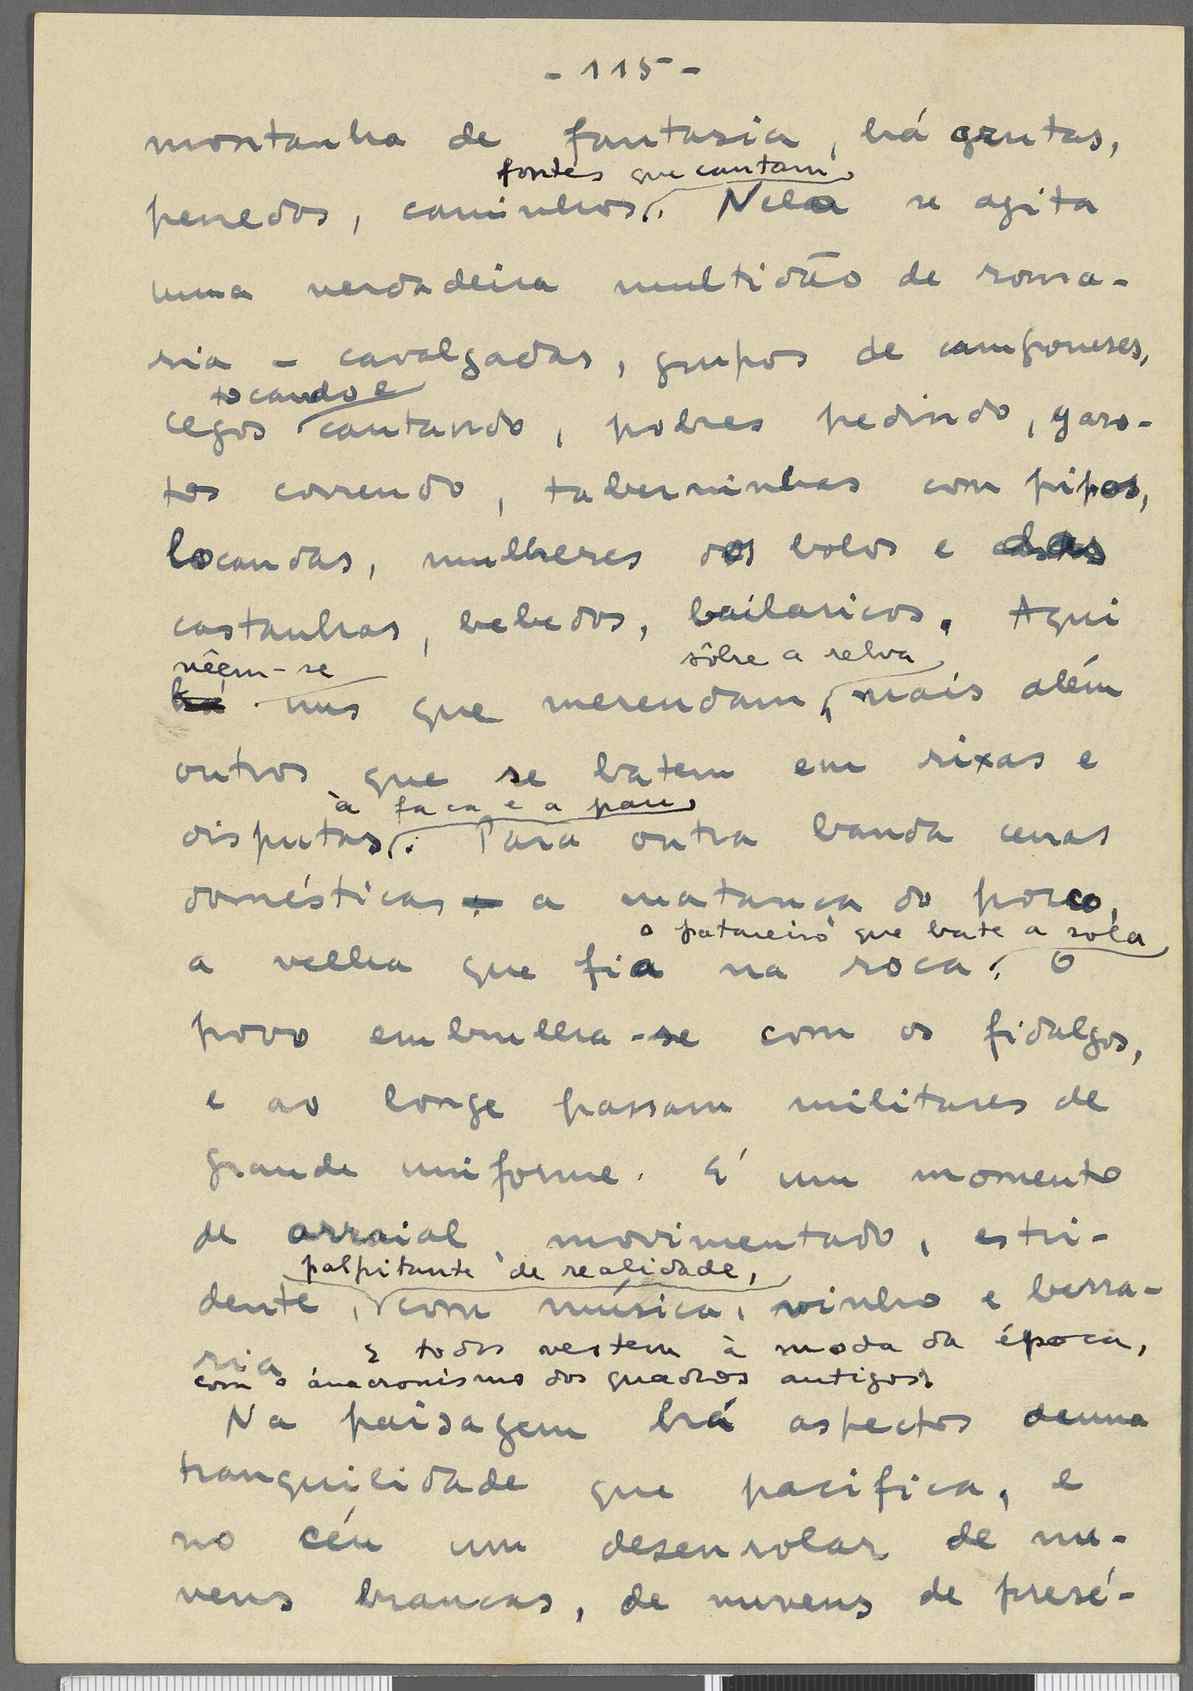 - 115 -
montanha de fantasia, há grutas,
fontes que cantam.
penedos, caminhos. Nela se agita
uma verdadeira multidão de roma-
ria - cavalgadas, grupos de camponeses,
tocando e
cegos cantando, pobres pedindo, garo-
tos correndo, taberninhas com pipos,
locandas, mulheres dos bolos e das
castanhas, bebedos, bailaricos. Aqui
vêem-se sôbre a relva
há uns que merendam, mais além
outros que se batem em rixas e
à faca e a pau
disputas. Para outra banda cenas
domésticas - a matança do porco,
o sapateiro que bate a sola
a velha que fia na roca. O
povo embrulha-se com os fidalgos,
e ao longe passam militares de
grande uniforme. É um momento
de arraial, movimentado, estri-
palpitante de realidade,
dente, com música, vinho e berra-
ria E todos vestem à moda da época,
com o anacronismo dos quadros antigos.
Na paisagem há aspectos duma
tranquilidade que pacifica, e
no céu um desenrolar de nu-
vens brancas, de nuvens de presé-